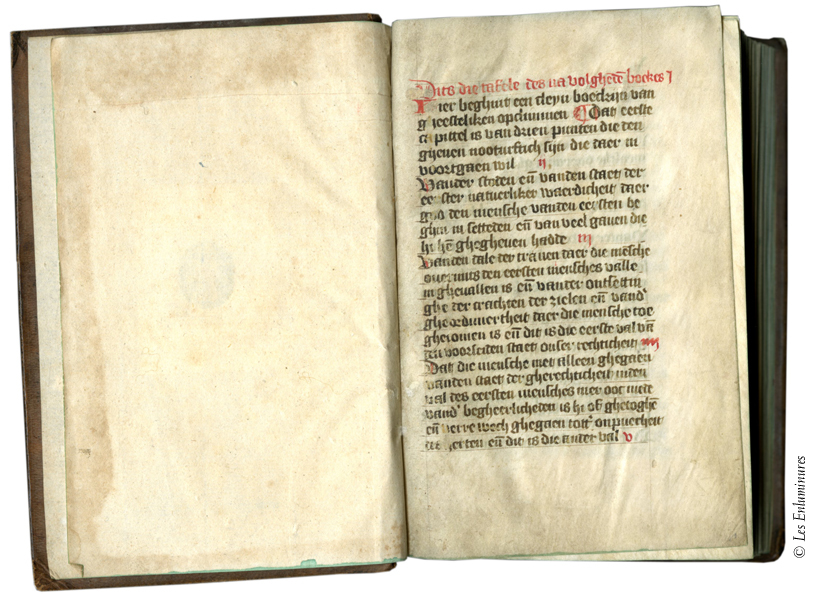 Dits die tafele des na volghendē boeckes i
Hier beghint een cleyn boecxkijn van
gheesteliken opclimmen Dat eerste
capittel is van drien punten die den
ghenen nooturftich sijn die daer in
voortgaen wil ii
Vander staden eñ vanden staet der
eerster natuerliker waerdicheit daer
god den mensche vanden eersten be
ghin in settede eñ van veel gauen die
hi hē ghegheuen hadde iii
Vanden vale der daer die mēsche
ouermits den eersten mensches valle
in gheuallen is eñ vander ontsettin
ghe der crachten der zielen eñ vand'
gheordiniertheit daer die mensche toe
ghecomen is eñ dit is die eerste val vā
den voorseiden staet onser rechticheit iiii
Dat die mensche niet alleen ghegaen
vanden staet der gherechticheit inden
val des eersten menschen mer ooc mede
vand' begheerlicheden is hi of ghetoghē
eñ verre wech ghegaen tott' onpuerheit
der herten eñ dit is die ander val v
© Les Enluminures